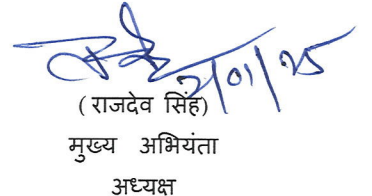 ( राजदेव सिंह)
मुख्य अभियंता
अध्यक्ष